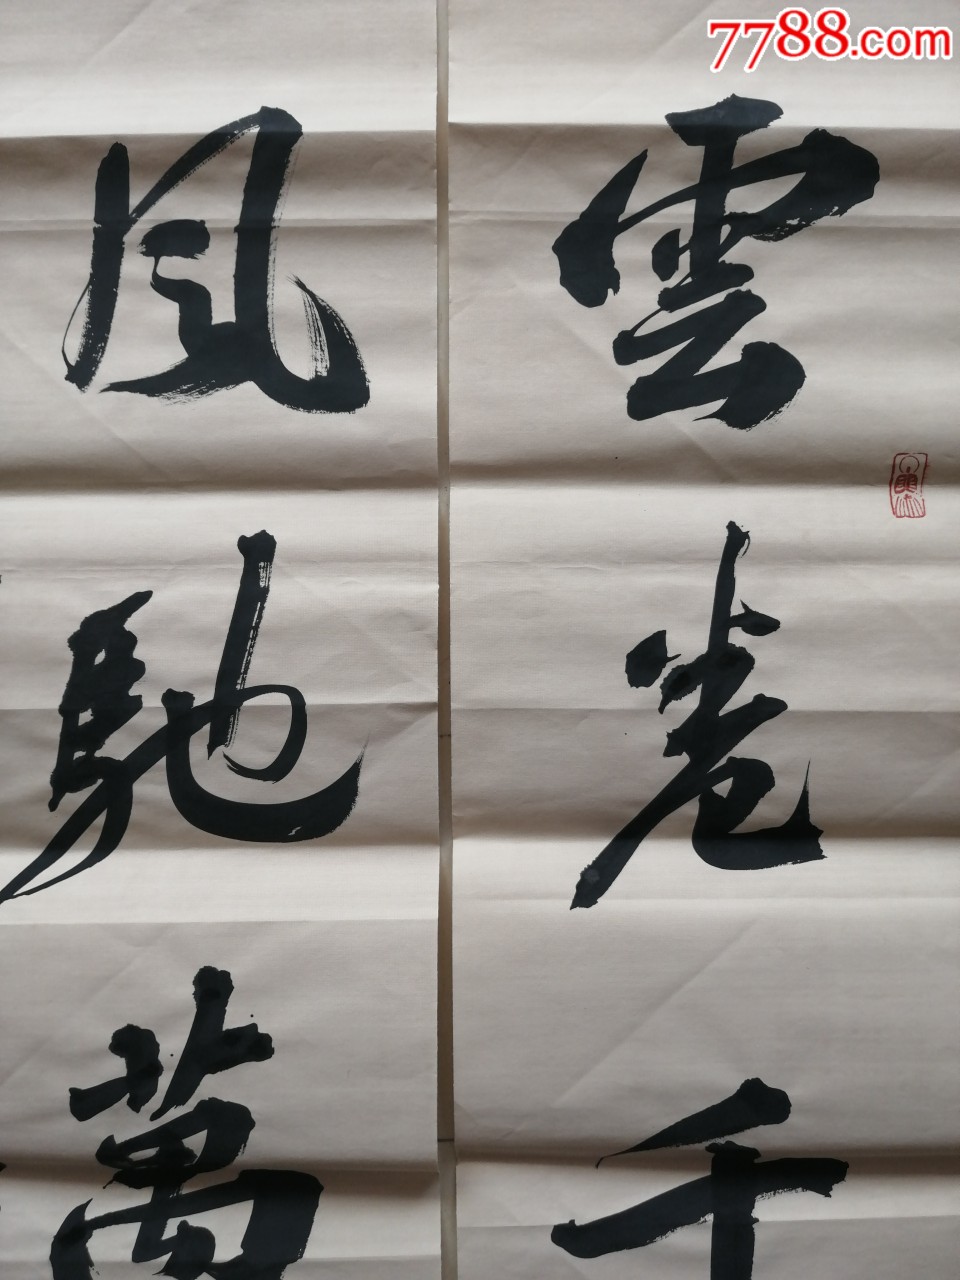 7788.com
雲卷千
风馳萬